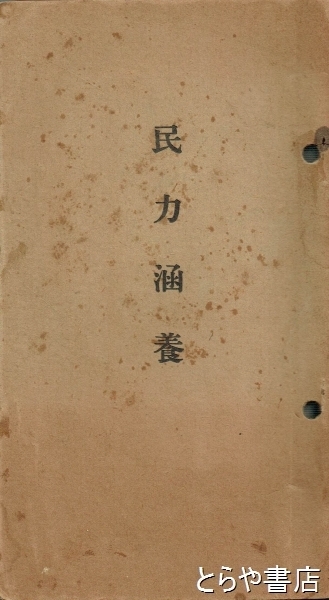 民力涵養
とらや書店